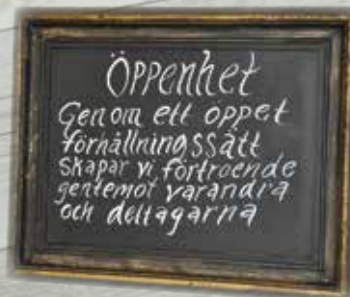 Öppenhet
Genom ett öppet
förhållningssätt
skapar vi förtroende
gentemot varandra
och deltagarna